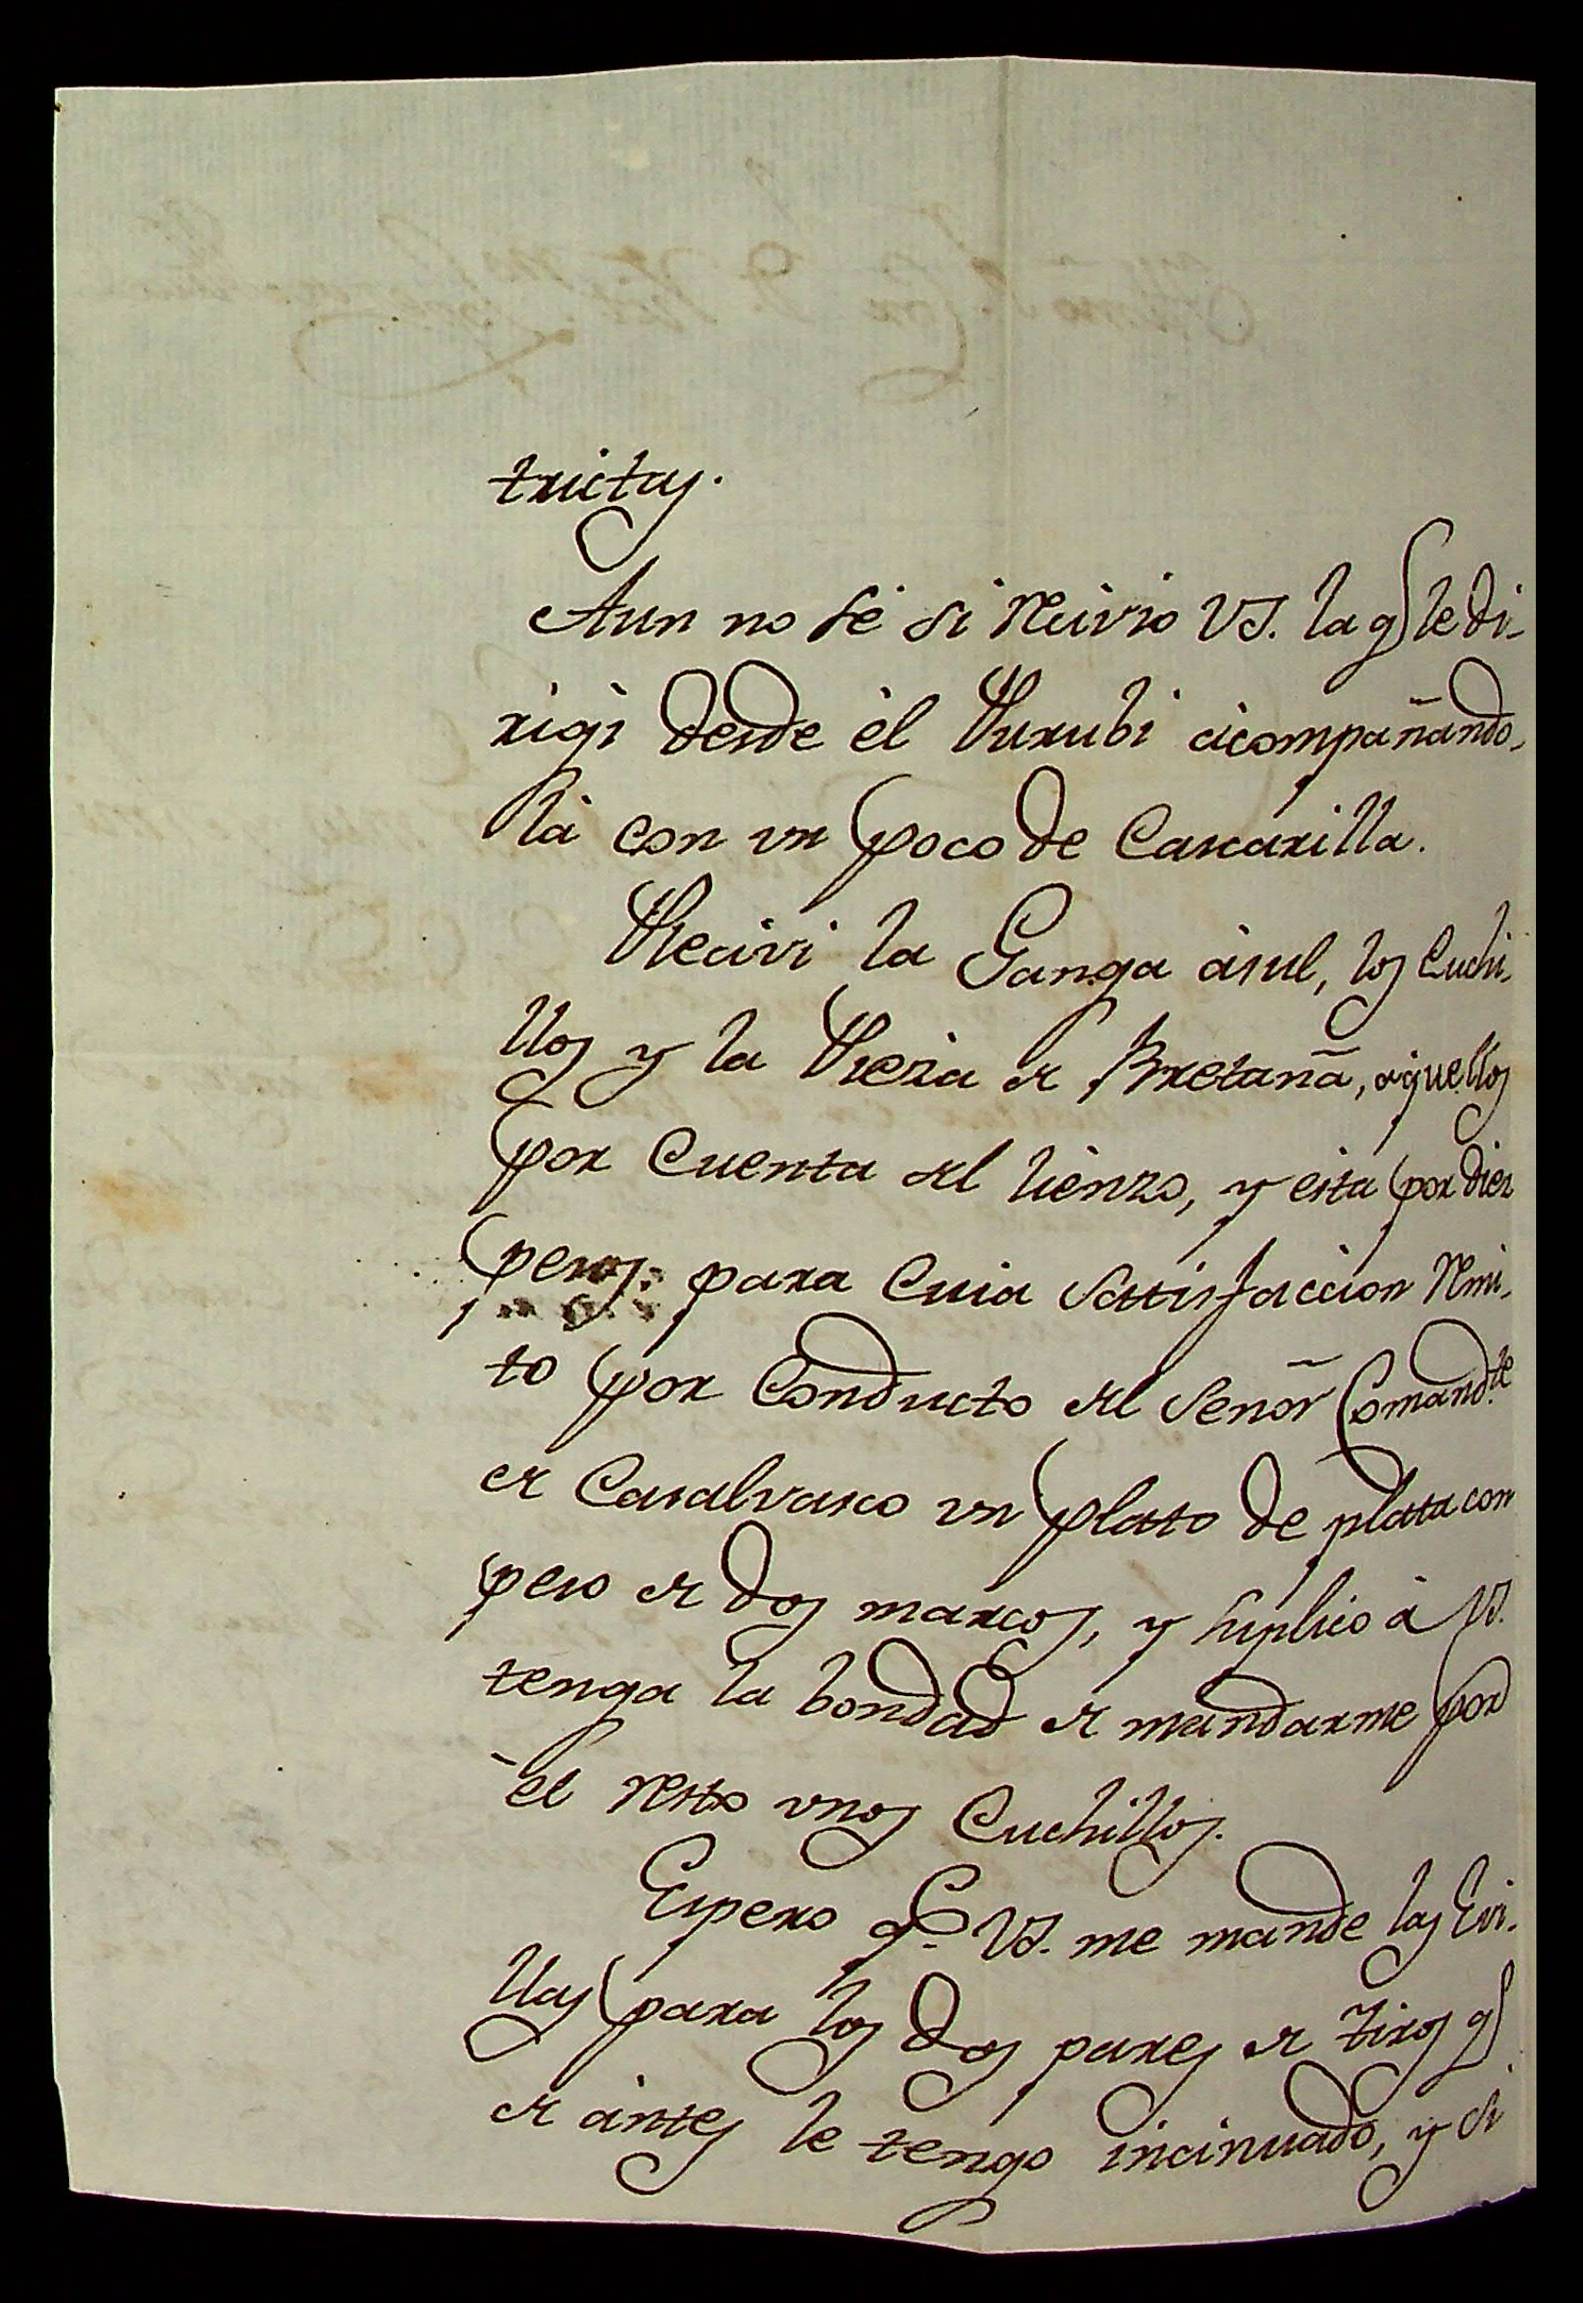 trictas.
Aun no sé si recivio VS. la q̃ le di-
rigi desde èl Rurubi àcompañando-
la con vn poco de Cascarilla.
Recivi la Ganga àsul, los Cuchi-
llos y la Piesa de Bretaña, aquellos
por Cuenta del lienzo, y esta por diez
pesos: para Cuia Sattisfaccion remi-
to por Conducto del Señor Comandte
de Casalvasco vn plato de platta con
peso de dos marcos, y suplico à VS.
tenga la bondad de mandarme por
èl resto vnos Cuchillos.
Espero qe. VS. me mande las Evi-
llas para los dos pares de tiros q̃
de àntes le tengo incinuado, y si